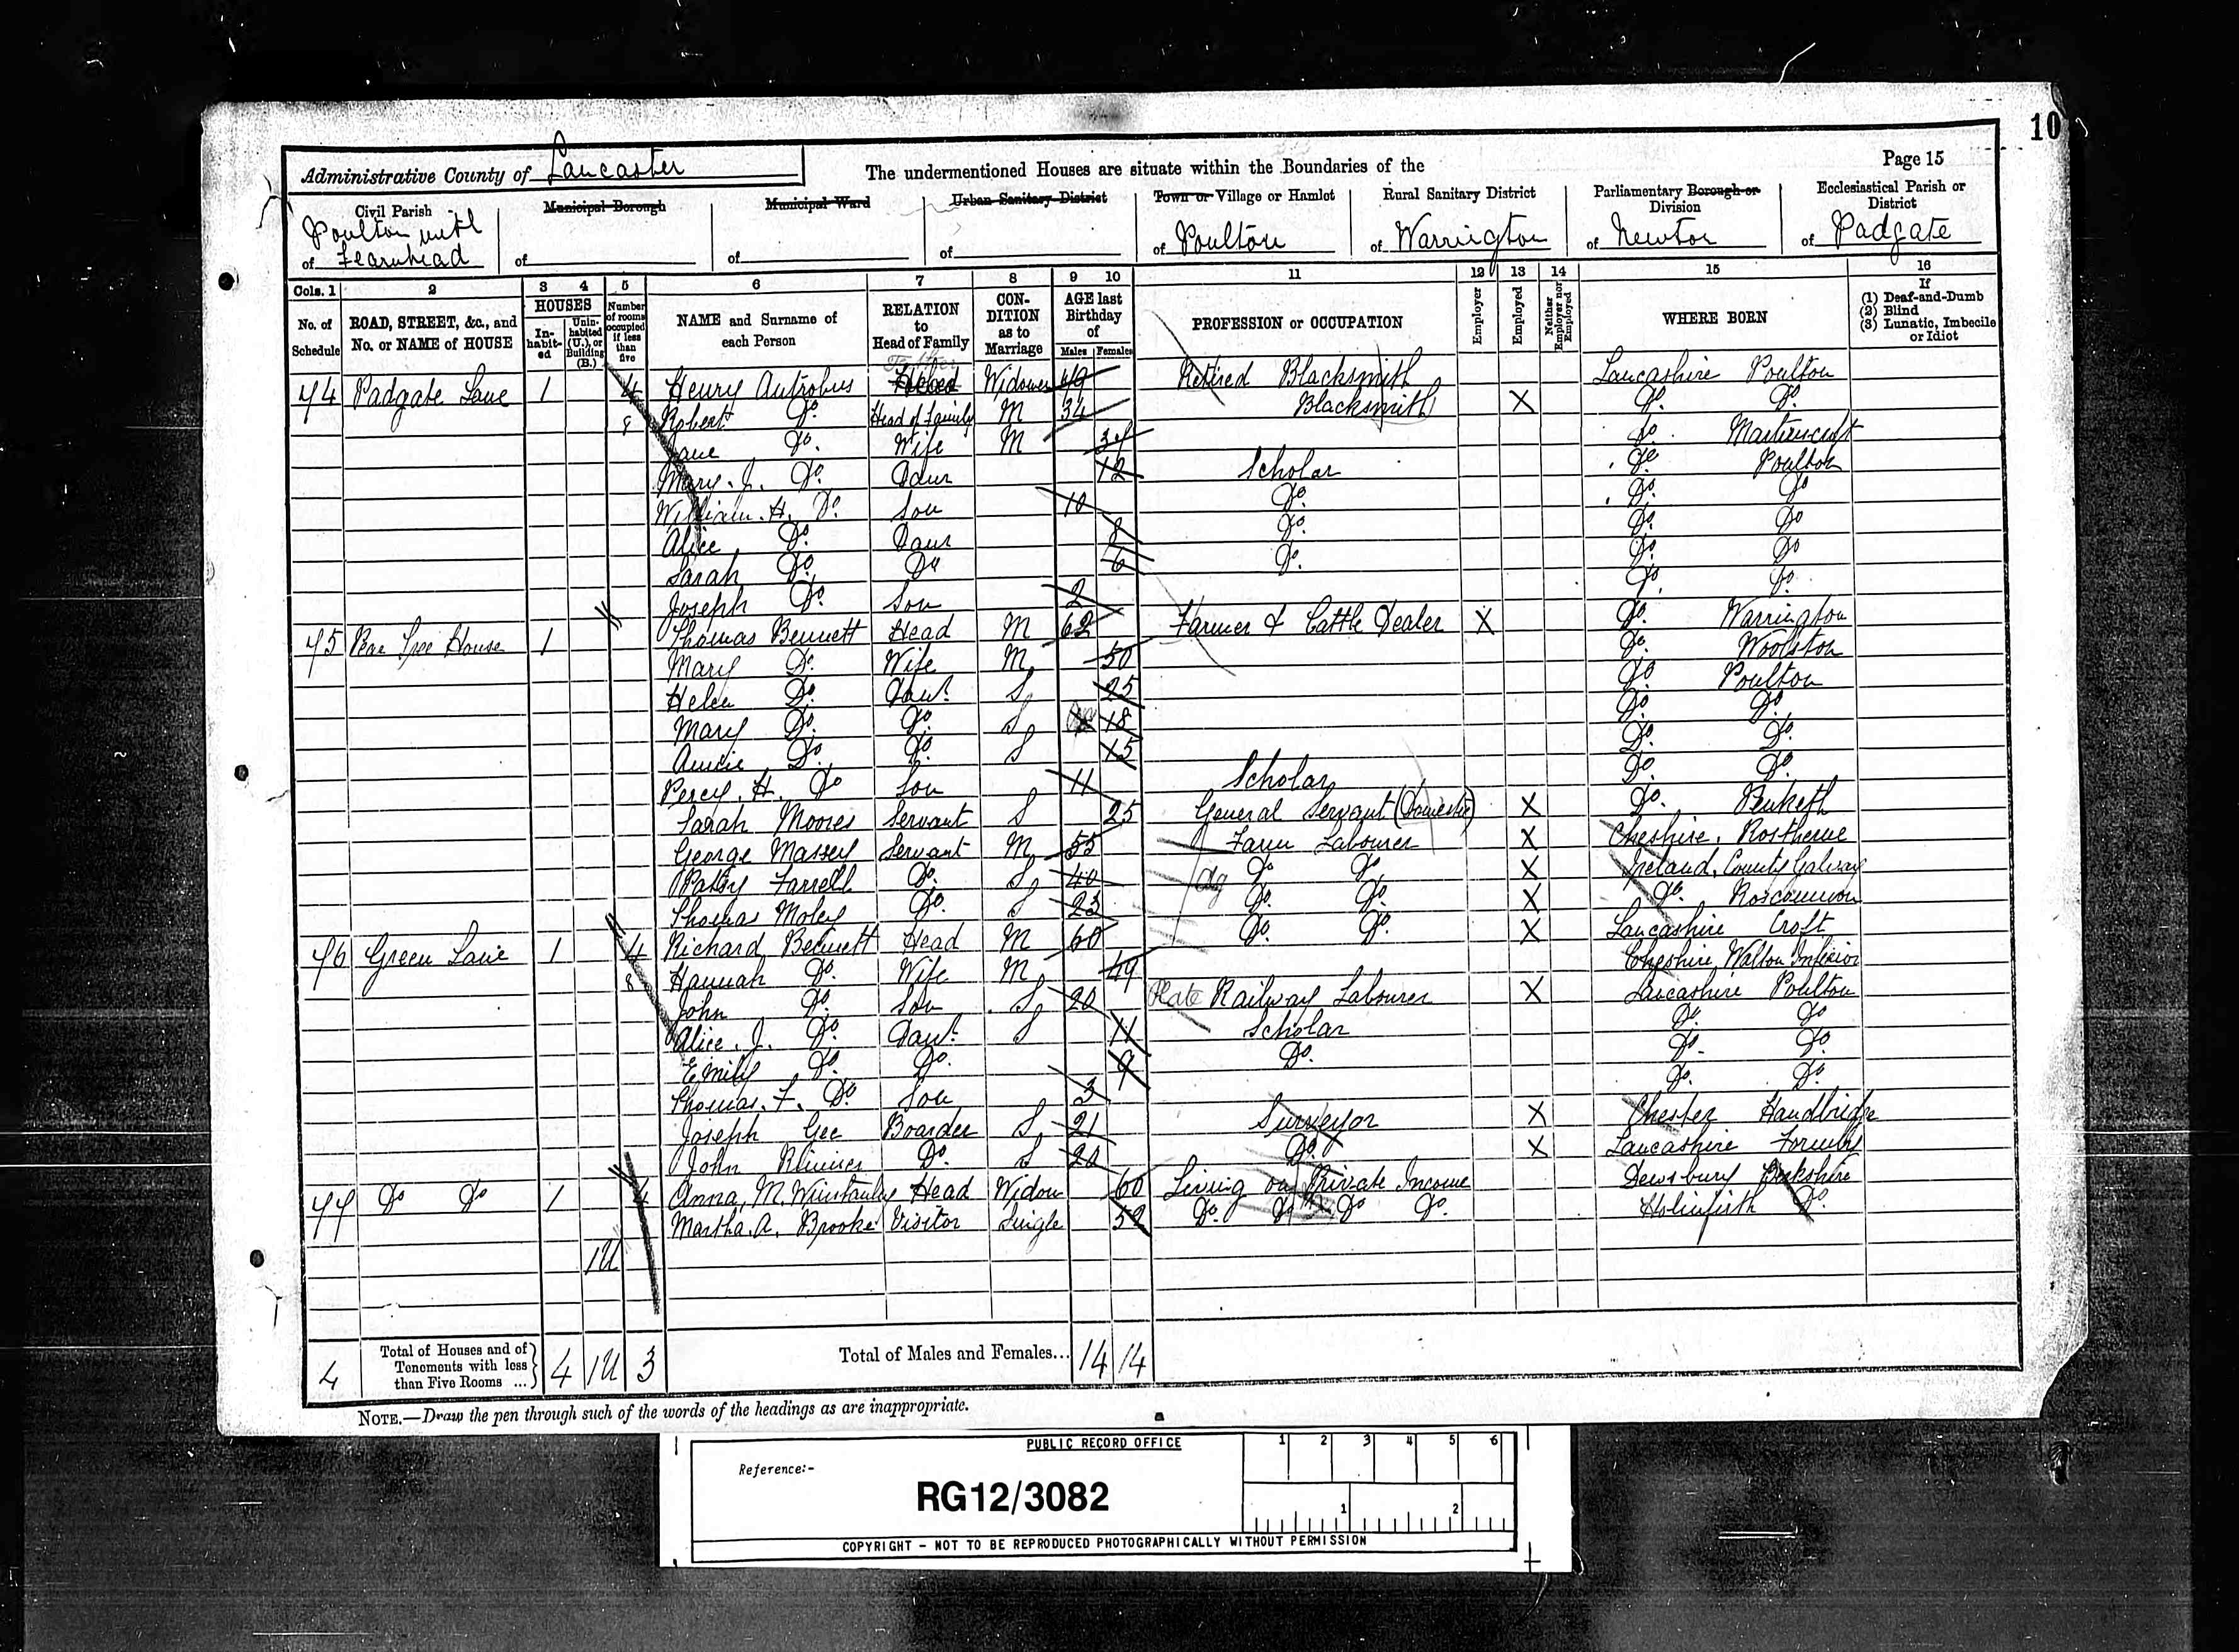 10
Page 15
Administrative County of Lancaster
The undermentioned Houses are situate within the Boundaries of the
Civil Parish of Poulton with Fearnhead
Municipal Borough of
Municipal Ward of
Urban Sanitary District of
Town or Village or Hamlet of Poulton
Rural Sanitary District of Warrington
Parliamentary Borough or Division of Newton
Ecclesiastical Parish or District of Padgate
Cols. 1 2 3 4 5 6 7 8 9 10 11 12 13 14 15 16
No. of Schedule
ROAD, STREET, &c., and No. or NAME of HOUSE
HOUSES
In-habit-ed
Unin-habited (U.), or Building (B.)
Number of rooms occupied if less than five
NAME and Surname of each Person
RELATION to Head of Family
CON-DITION as to Marriage
AGE last Birthday of
Males Females
PROFESSION or OCCUPATION
Employer
Employed
Neither Employer nor Employed
WHERE BORN
If
(1) Deaf-and-Dumb
(2) Blind
(3) Lunatic, Imbecile or Idiot
74 Padgate Lane 1 4 Henry Antrobus Father Head Widower Retired Blacksmith Lancashire Poulton
8 Robert Do. Head of Family M 34 Blacksmith X Do. Do.
Jane Do. Wife M Do.
Mary. J. Do. Daur 12 Scholar Do. Poulton
William. H. Do. Son 10 Do. Do. Do
Alice Do. Daur 8 Do. Do. Do
Sarah Do. Do 6 Do. Do. Do
Joseph Do. Son 2 Do. Do.
75 Pear Tree House 1 Thomas Bennett Head M 62 Farmer & Cattle Dealer X Do. Warrington
Mary Do. Wife M 50 Do. Woolston
Helen Do. Daur. S 25 Do. Poulton
Mary Do. Do. S 18 Do. Do.
Annie Do. Do. S 15 Do. Do.
Percy. H. Do Son 11 Scholar Do. Do.
Sarah Moores Servant S 25 General Servant (Domestic) X Do. Penketh
George Massey Servant M 55 Farm Labourer X Cheshire. Rostherne
Patsy Farrell Do. S 40 Ag Do Do. X Ireland. County Galway
Thomas Moley Do. S 23 Do. Do. X Do. Roscommon
76 Green Lane 1 4 Richard Bennett Head M 60 Do. Do. X Lancashire Croft
8 Hannah Do. Wife M 49 Cheshire Walton Inferior
John Do. Son S 20 Plate Railway Labourer X Lancashire Poulton
Alice. J. Do. Daur. S 11 Scholar Do. Do
Emily Do. Do. 9 Do. Do. Do.
Thomas. F. Do. Son 3 Do. Do.
Joseph Gee Boarder S 21 Surveyor X Chester Handbridge
John Do. S 20 Do. X Lancashire Formby
77 Do Do 1 4 Anna, M. Winstanley Head Widow 60 Living on Private Income Dewsbury Yorkshire
Martha. A. Brooke Visitor Single 52 Do. Do Do Do. Holmfirth Do.
1U
4 Total of Houses and of Tenements with less than Five Rooms ... 4 1U 3 Total of Males and Females... 14 14
NOTE.—Draw the pen through such of the words of the headings as are inappropriate.
PUBLIC RECORD OFFICE
1 2 3 4 5 6
Reference:-
RG12/3082
1 2
COPYRIGHT - NOT TO BE REPRODUCED PHOTOGRAPHICALLY WITHOUT PERMISSION